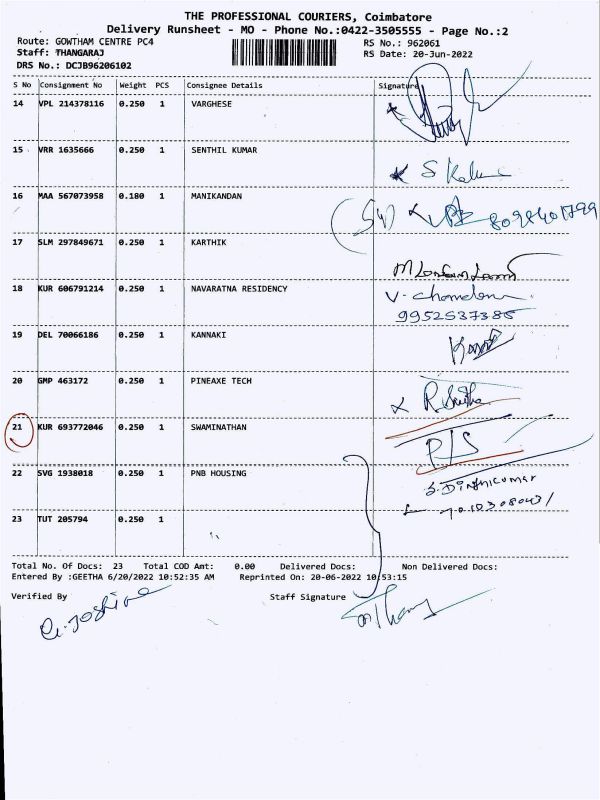 THE PROFESSIONAL COURIERS, Coimbatore
Delivery Runsheet - MO - Phone No.:0422-3505555 - Page No.:2
Route: GOWTHAM CENTRE PC4 RS No.: 962061
Staff: THANGARAJ RS Date: 20-Jun-2022
DRS No.: DCJB96206102
S No Consignment No Weight PCS Consignee Details Signature
14 VPL 214378116 0.250 1 VARGHESE
15 VRR 1635666 0.250 1 SENTHIL KUMAR
16 MAA 567073958 0.180 1 MANIKANDAN
17 SLM 297849671 0.250 1 KARTHIK
18 KUR 606791214 0.250 1 NAVARATNA RESIDENCY
9952537385
19 DEL 70066186 0.250 1 KANNAKI
20 GMP 463172 0.250 1 PINEAXE TECH
21 KUR 693772046 0.250 1 SWAMINATHAN
P/S
22 SVG 1938018 0.250 1 PNB HOUSING
23 TUT 205794 0.250 1
Total No. Of Docs: 23 Total COD Amt: 0.00 Delivered Docs: Non Delivered Docs:
Entered By :GEETHA 6/20/2022 10:52:35 AM Reprinted On: 20-06-2022 10:53:15
Verified By Staff Signature